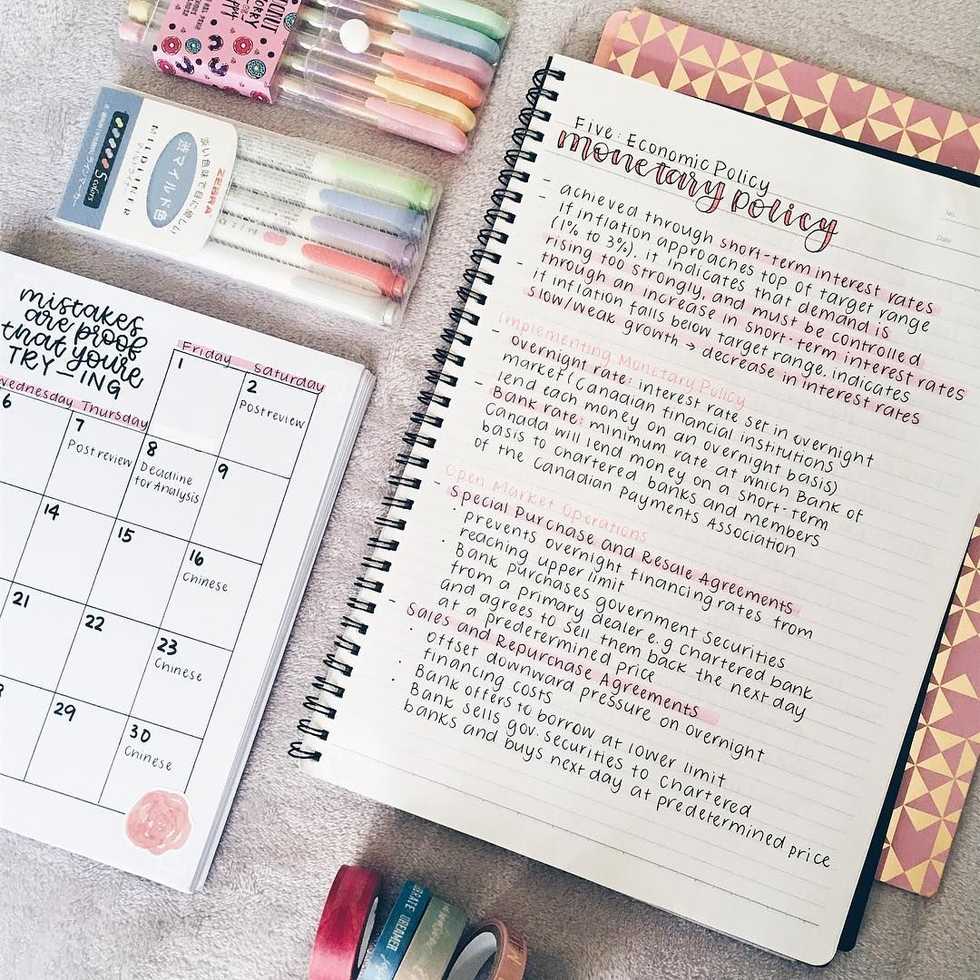 HAPPY
ZEBRA
MILDLINER
5 colors
渋マイルド色
mistakes
are proof
that you're
TRY-ING
Wednesday Thursday Friday Saturday
1
2
Postreview
6
7
Postreview
8
Deadline
for Analysis
9
14
15
16
Chinese
21
22
23
Chinese
29
30
Chinese
Five: Economic Policy
monetary policy
- achieved through short-term interest rates
- if inflation approaches top of target range
(1% to 3%), it indicates that demand is
rising too strongly, and must be controlled
through an increase in short-term interest rates
- if inflation falls below target range, indicates
slow/weak growth → decrease in interest rates
Implementing Monetary Policy
- overnight rate: interest rate set in overnight
market (Canadian financial institutions
lend each money on an overnight basis)
- Bank rate: minimum rate at which Bank of
Canada will lend money on a short-term
basis to chartered banks and members
of the Canadian Payments Association
Open Market Operations
- Special Purchase and Resale Agreements
· prevents overnight financing rates from
reaching upper limit
· Bank purchases government securities
from a primary dealer e.g chartered bank
and agrees to sell them back the next day
at a predetermined price
- Sales and Repurchase Agreements
· offset downward pressure on overnight
financing costs
· Bank offers to borrow at lower limit
· Bank sells gov. securities to chartered
banks and buys next day at predetermined price
No.
Date
DREAMER